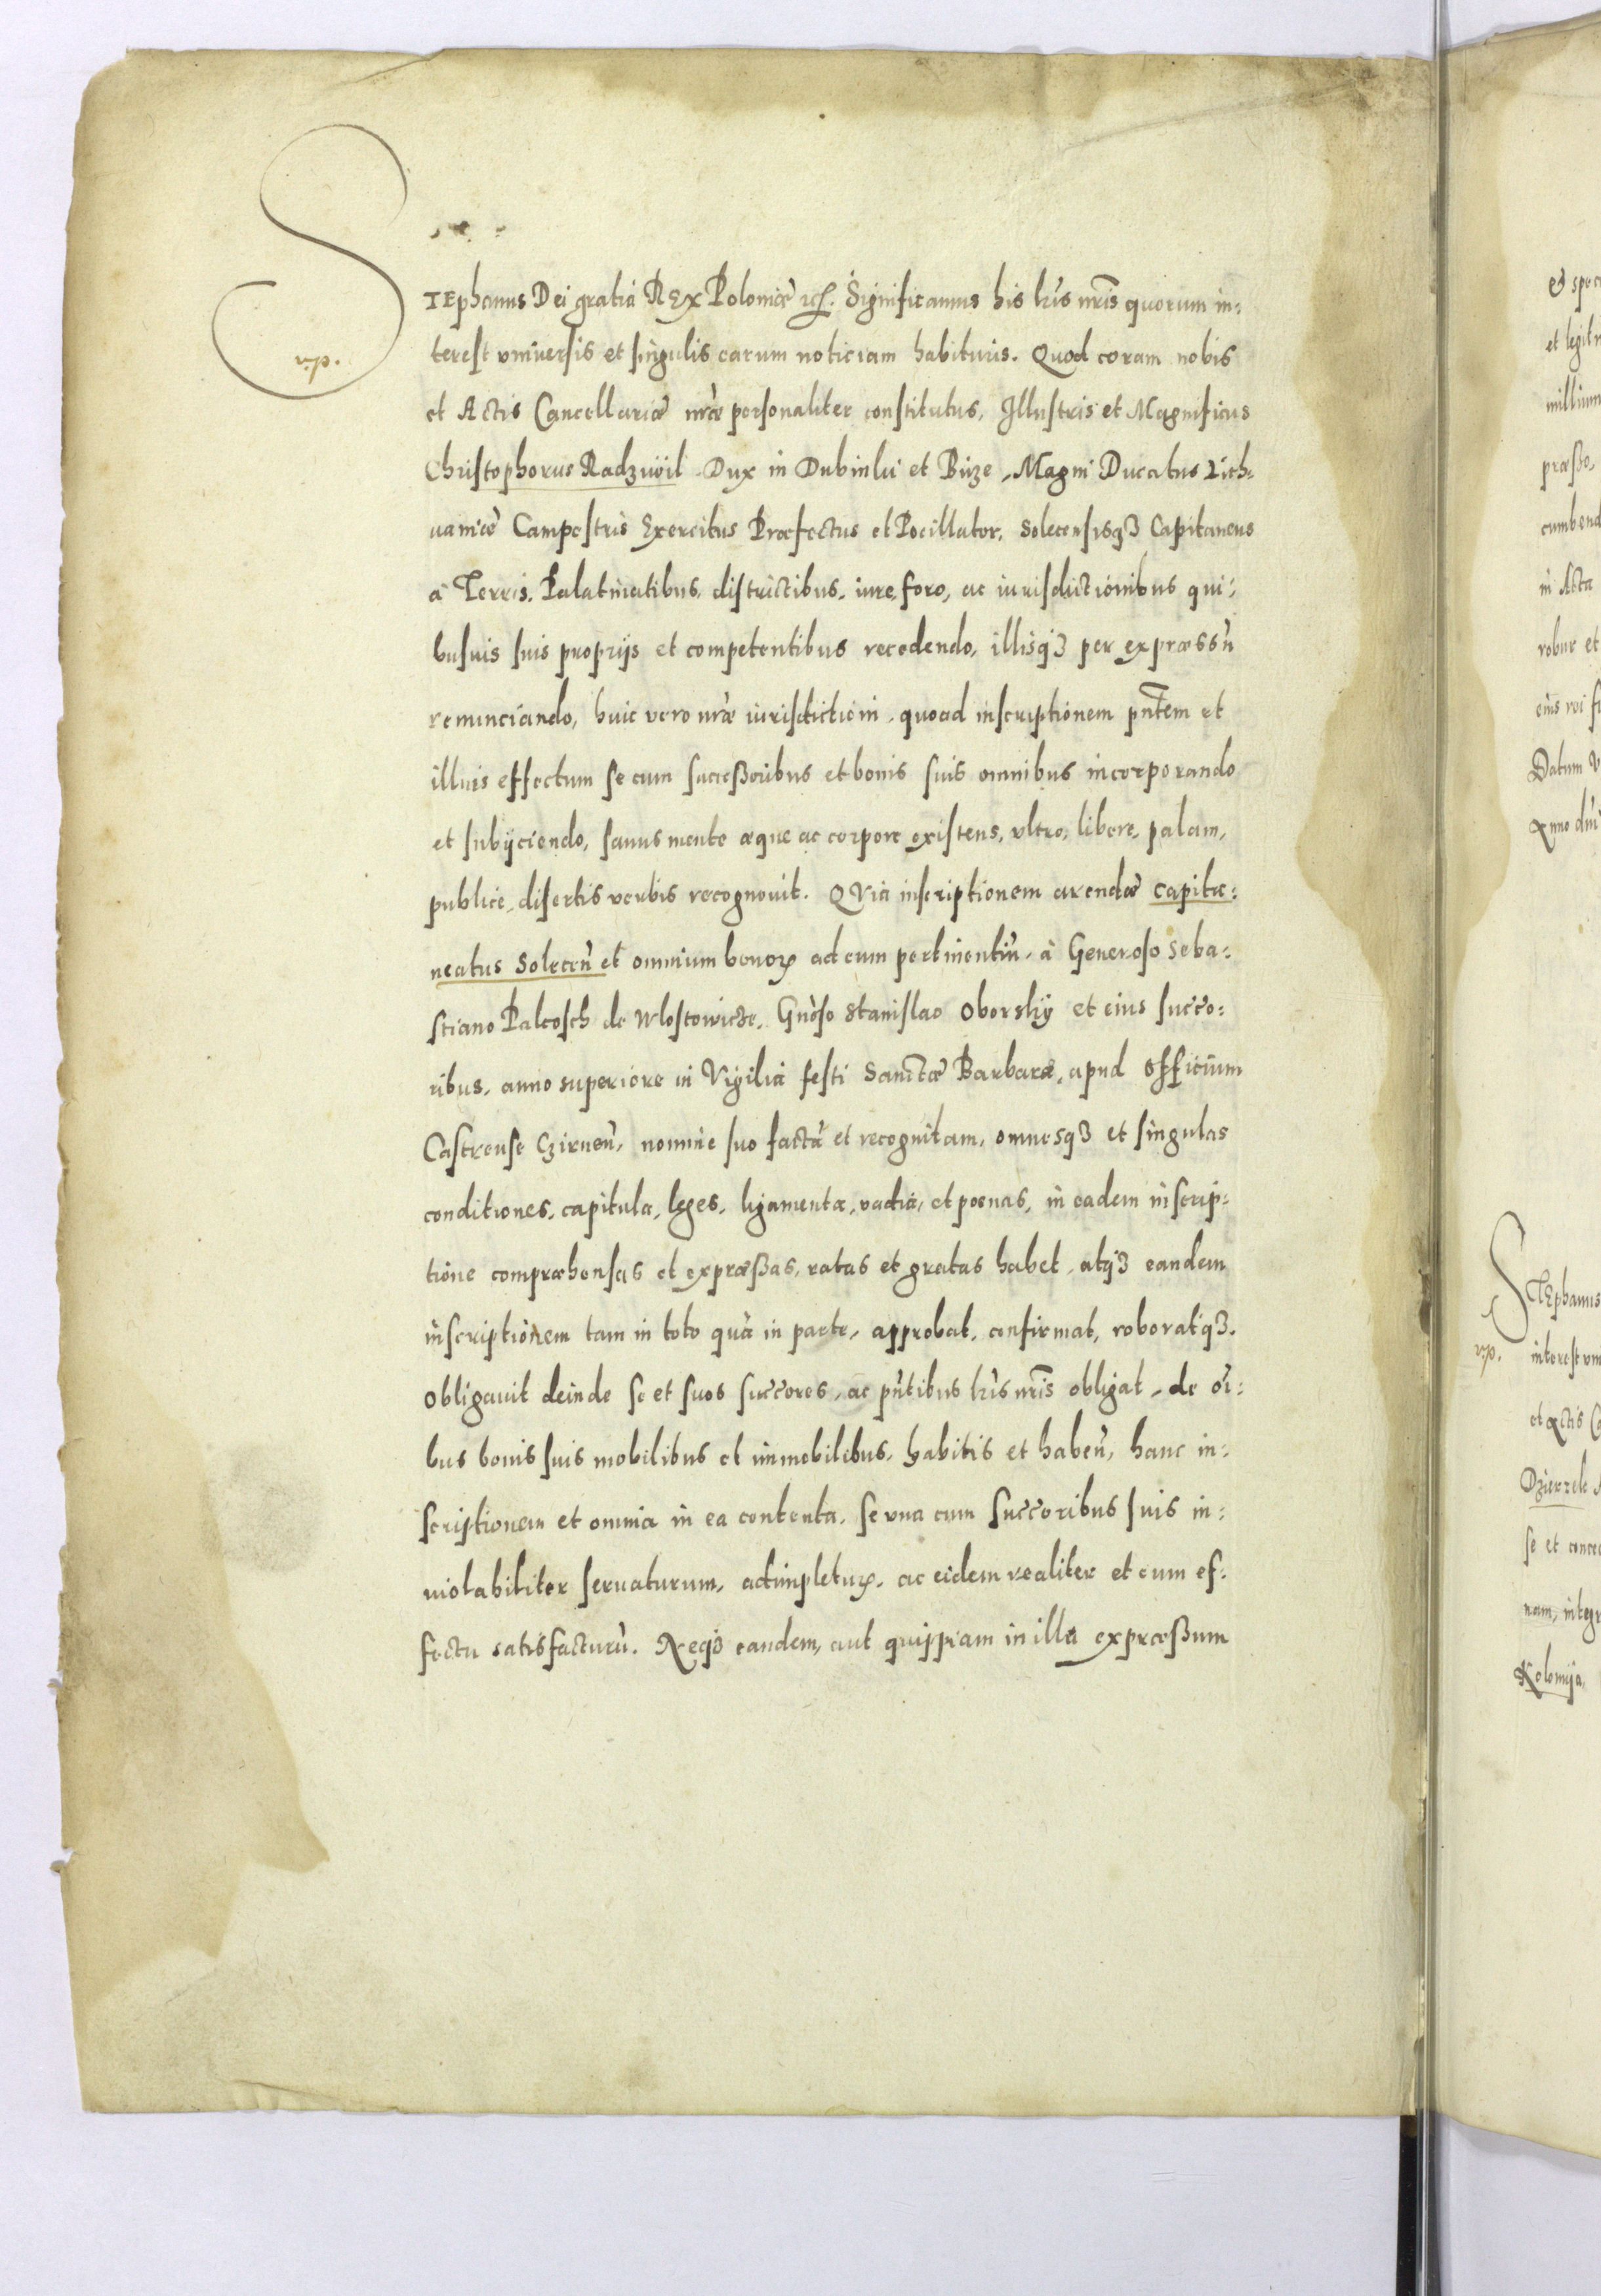 STEphanus Dei gratia REx Poloniæ etc. Significamus his lris nris quorum in-
vp.
terest vniuersis et singulis earum noticiam habituris. Quod coram nobis
et Actis Cancellariæ nræ personaliter constitutus, Illustris et Magnificus
Christophorus Radziwil Dux in Dubinki et Birze, Magni Ducatus Lith-
uaniæ Campestris Exercitus Præfectus et Pocillator, Solecensisqз Capitaneus
à Terris, Palatinatibus, districtibus, iure, foro, ac iurisdictionibus qui-
busuis suis proprijs et competentibus recedendo, illisqз per expræssũ
renunciando, huic vero nræ iurisdictioni, quoad inscriptionem pñtem et
illius effectum se cum successoribus et bonis suis omnibus incorporando
et subijciendo, sanus mente æque ac corpore existens, vltro, libere, palam,
publice, disertis verbis recognouit. QVia inscriptionem arendæ Capita-
neatus Solecen̄ et omnium bonoꝝ ad eum pertinentiũ, à Generoso Seba-
stiano Paleosch de Wlostowicze, Gñoso Stanislao Oborsky et eius succo-
ribus, anno superiore in Vigilia festi Sanctæ Barbaræ, apud Officium
Castrense Czirnen̄, nomine suo factã et recognitam, omnesqз et singulas
conditiones, capitula, leges, ligamenta, vadia, et poenas, in eadem inscrip-
tione compræhensas et expræssas, ratas et gratas habet, atqз eandem
inscriptionem tam in toto quã in parte, approbat, confirmat, roboratqз.
Obligauit deinde se et suos succores, ac pñtibus lris nris obligat, de oi-
bus bonis suis mobilibus et immobilibus, habitis et haben̄, hanc in-
scriptionem et omnia in ea contenta, se vna cum succoribus suis in-
uiolabiliter seruaturum, adimpletuꝝ, ac eidem realiter et cum ef-
fectu satisfacturũ. Neqз eandem, aut quippiam in illa expræssum
et legit
millium
præsso,
in Acta
robur et
eius rei
Datum
Anno dni
STEphanus
vp.
interest vn
et Actis
Dzierzek
se et
nam, integr
Kolomija,